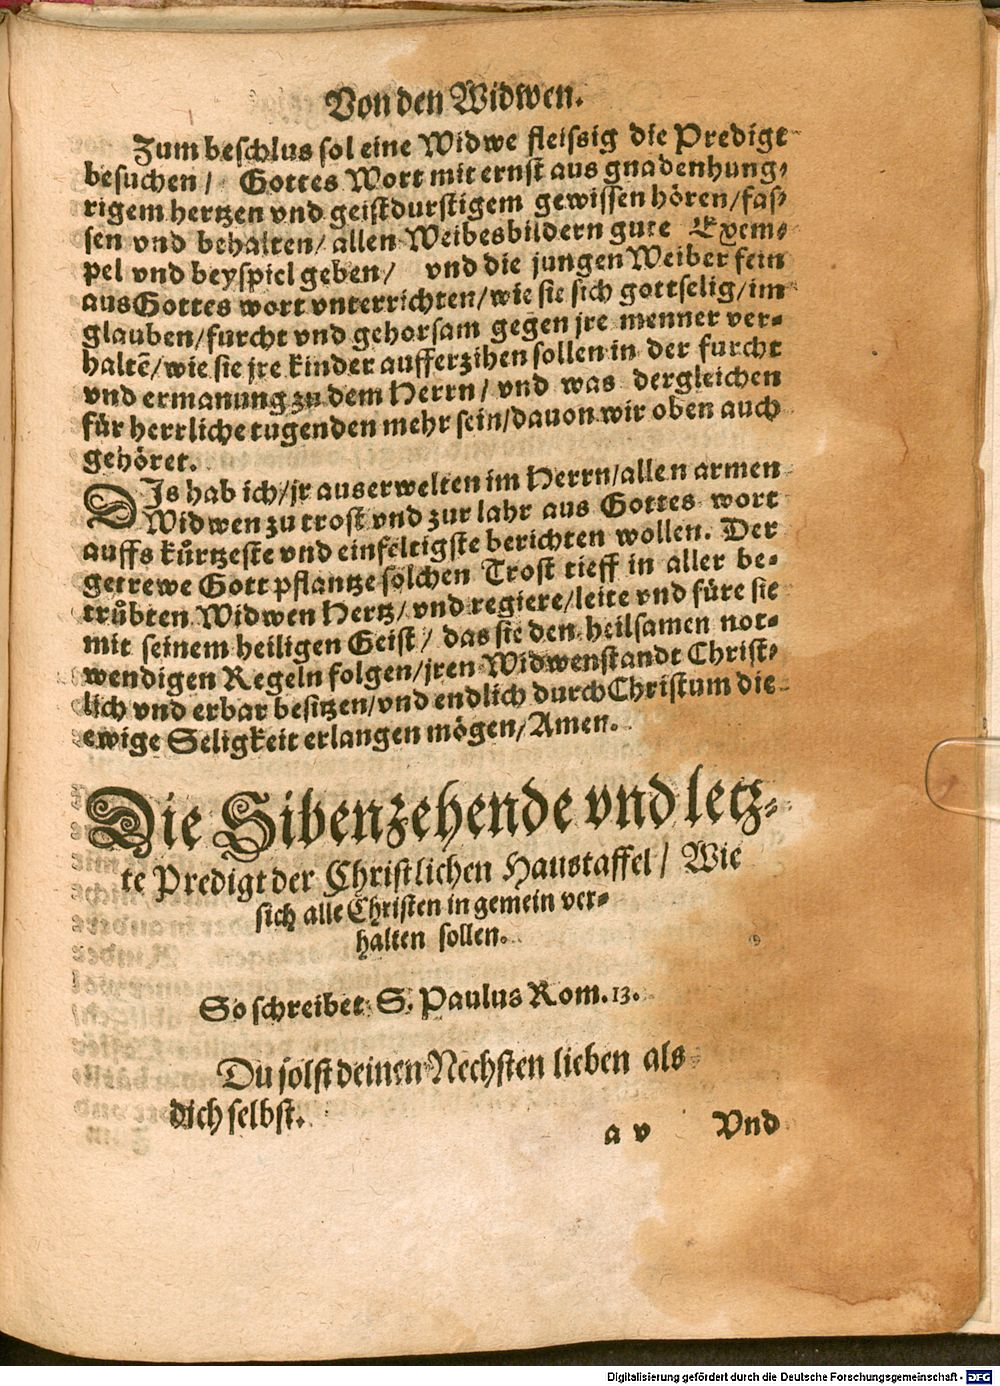 Von den Widwen.
Zum beschlus sol eine Widwe fleissig die Predigt
besuchen / Gottes Wort mit ernst aus gnadenhung-
rigem hertzen vnd geistdurstigem gewissen hören/fas-
sen vnd behalten/ allen Weibesbildern gute Exem-
pel vnd beyspiel geben/ vnd die jungen Weiber fein
aus Gottes wort vnterrichten/wie sie sich gottselig/im
glauben/furcht vnd gehorsam gegen jre menner ver-
haltē/wie sie jre kinder aufferzihen sollen in der furcht
vnd ermanung zu dem Herrn/ vnd was dergleichen
für herrliche tugenden mehr sein/dauon wir oben auch
gehöret.
DIs hab ich/jr auserwelten im Herrn/allen armen
Widwen zu trost vnd zur lahr aus Gottes wort
auffs kůrtzeste vnd einfeltigste berichten wollen. Der
getrewe Gott pflantze solchen Trost tieff in aller be-
trůbten Widwen Hertz/ vnd regiere/leite vnd füre sie
mit seinem heiligen Geist/ das sie den heilsamen not-
wendigen Regeln folgen/jren Widwenstandt Christ-
lich vnd erbar besitzen/vnd endlich durch Christum die
ewige Seligkeit erlangen mögen/Amen.
Die Sibenzehende vnd letz-
te Predigt der Christlichen Haustaffel/ Wie
sich alle Christen in gemein ver-
halten sollen.
So schreibet S. Paulus Rom. 13.
Du solst deinen Nechsten lieben als
dich selbst.
a v Vnd
Digitalisierung gefördert durch die Deutsche Forschungsgemeinschaft - DFG